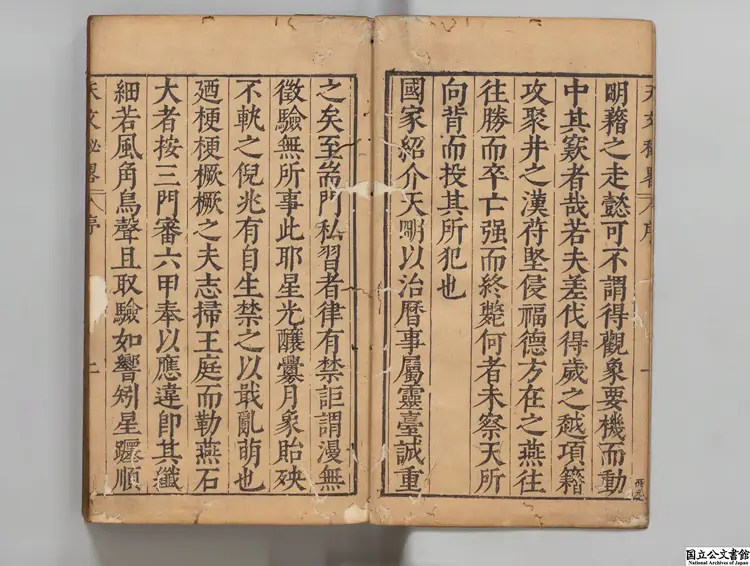 明藉之走懿可不謂得觀象要機而動
中其窾者哉若夫差伐得歲之越項籍
攻聚井之漢苻堅侵福德方在之燕往
往勝而卒亡强而終斃何者未察天所
向背而投其所犯也
國家紹介天明以治曆事屬靈臺誠重
之矣至耑門私習者律有禁詎謂漫無
徵驗無所事此耶星光釀釁月象貽殃
不軌之倪兆有自生禁之以戢亂萌也
廼梗梗橛橛之夫志掃王庭而勒燕石
大者按三門審六甲奉以應違卽其纖
細若風角鳥聲且取驗如響矧星躔順
天文秘畧 序
国立公文書館
National Archives of Japan